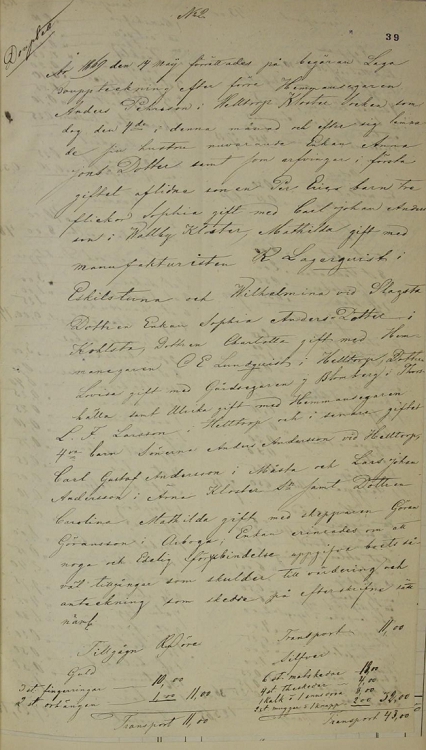 No 2.
39
Douplett
År 1869 den 14 Maij förrättades på begäran Laga
Bouppteckning efter förre Hemmansegaren
Anders Persson i Helltorp Kloster Socken som
dog den 4de i denna månad och efter sig lemna
de sin hustru nuvarande Enkan Anna
Jons Dotter samt som arfvingar i första
giftet aflidne sonen Per Erics barn tre
flickor Sophia gift med Carl Johan Anders
son i Wallby Kloster, Mathilda gift med
manufakturisten R Lagerqvist i
Eskilstuna och Wilhelmina vid Slagsta
Dottren Enkan Sophia Anders Dotter i
Kohlsta, Dottren Charlotta gift med Hem
mansegaren C E Lundqvist i Helltorp, Dottren
Lovisa gift med Gårdsegaren J Blomberg i
samt Ulrika gift med Hemmansegaren
L. F. Larsson i Helltorp och i senare giftet
4ra barn Sönerna Anders Andersson vid Helltorp,
Carl Gustaf Andersson i Mästa och Lars Johan
Andersson i Arna Kloster Sn samt Dottren
Carolina Mathilda gift med skepparen Göran
Göransson i Arboga; Enkan erinrades om att
noga och Edelig förbindelse uppgifva boets så
väl tillgångar som skulder till värdering och
anteckning som skedde på efterskrifne sätt
näml
Tillgång Rd öre
Transport 11,00
Guld
Silfver
3 st fingerringar 10,00
2 st örhängen 1.00 11,00
6 st. matskedar 18,00
4 st theskedar
1 kalk
2 st 2.00 32,00
Transport 11,00
Transport 43,00